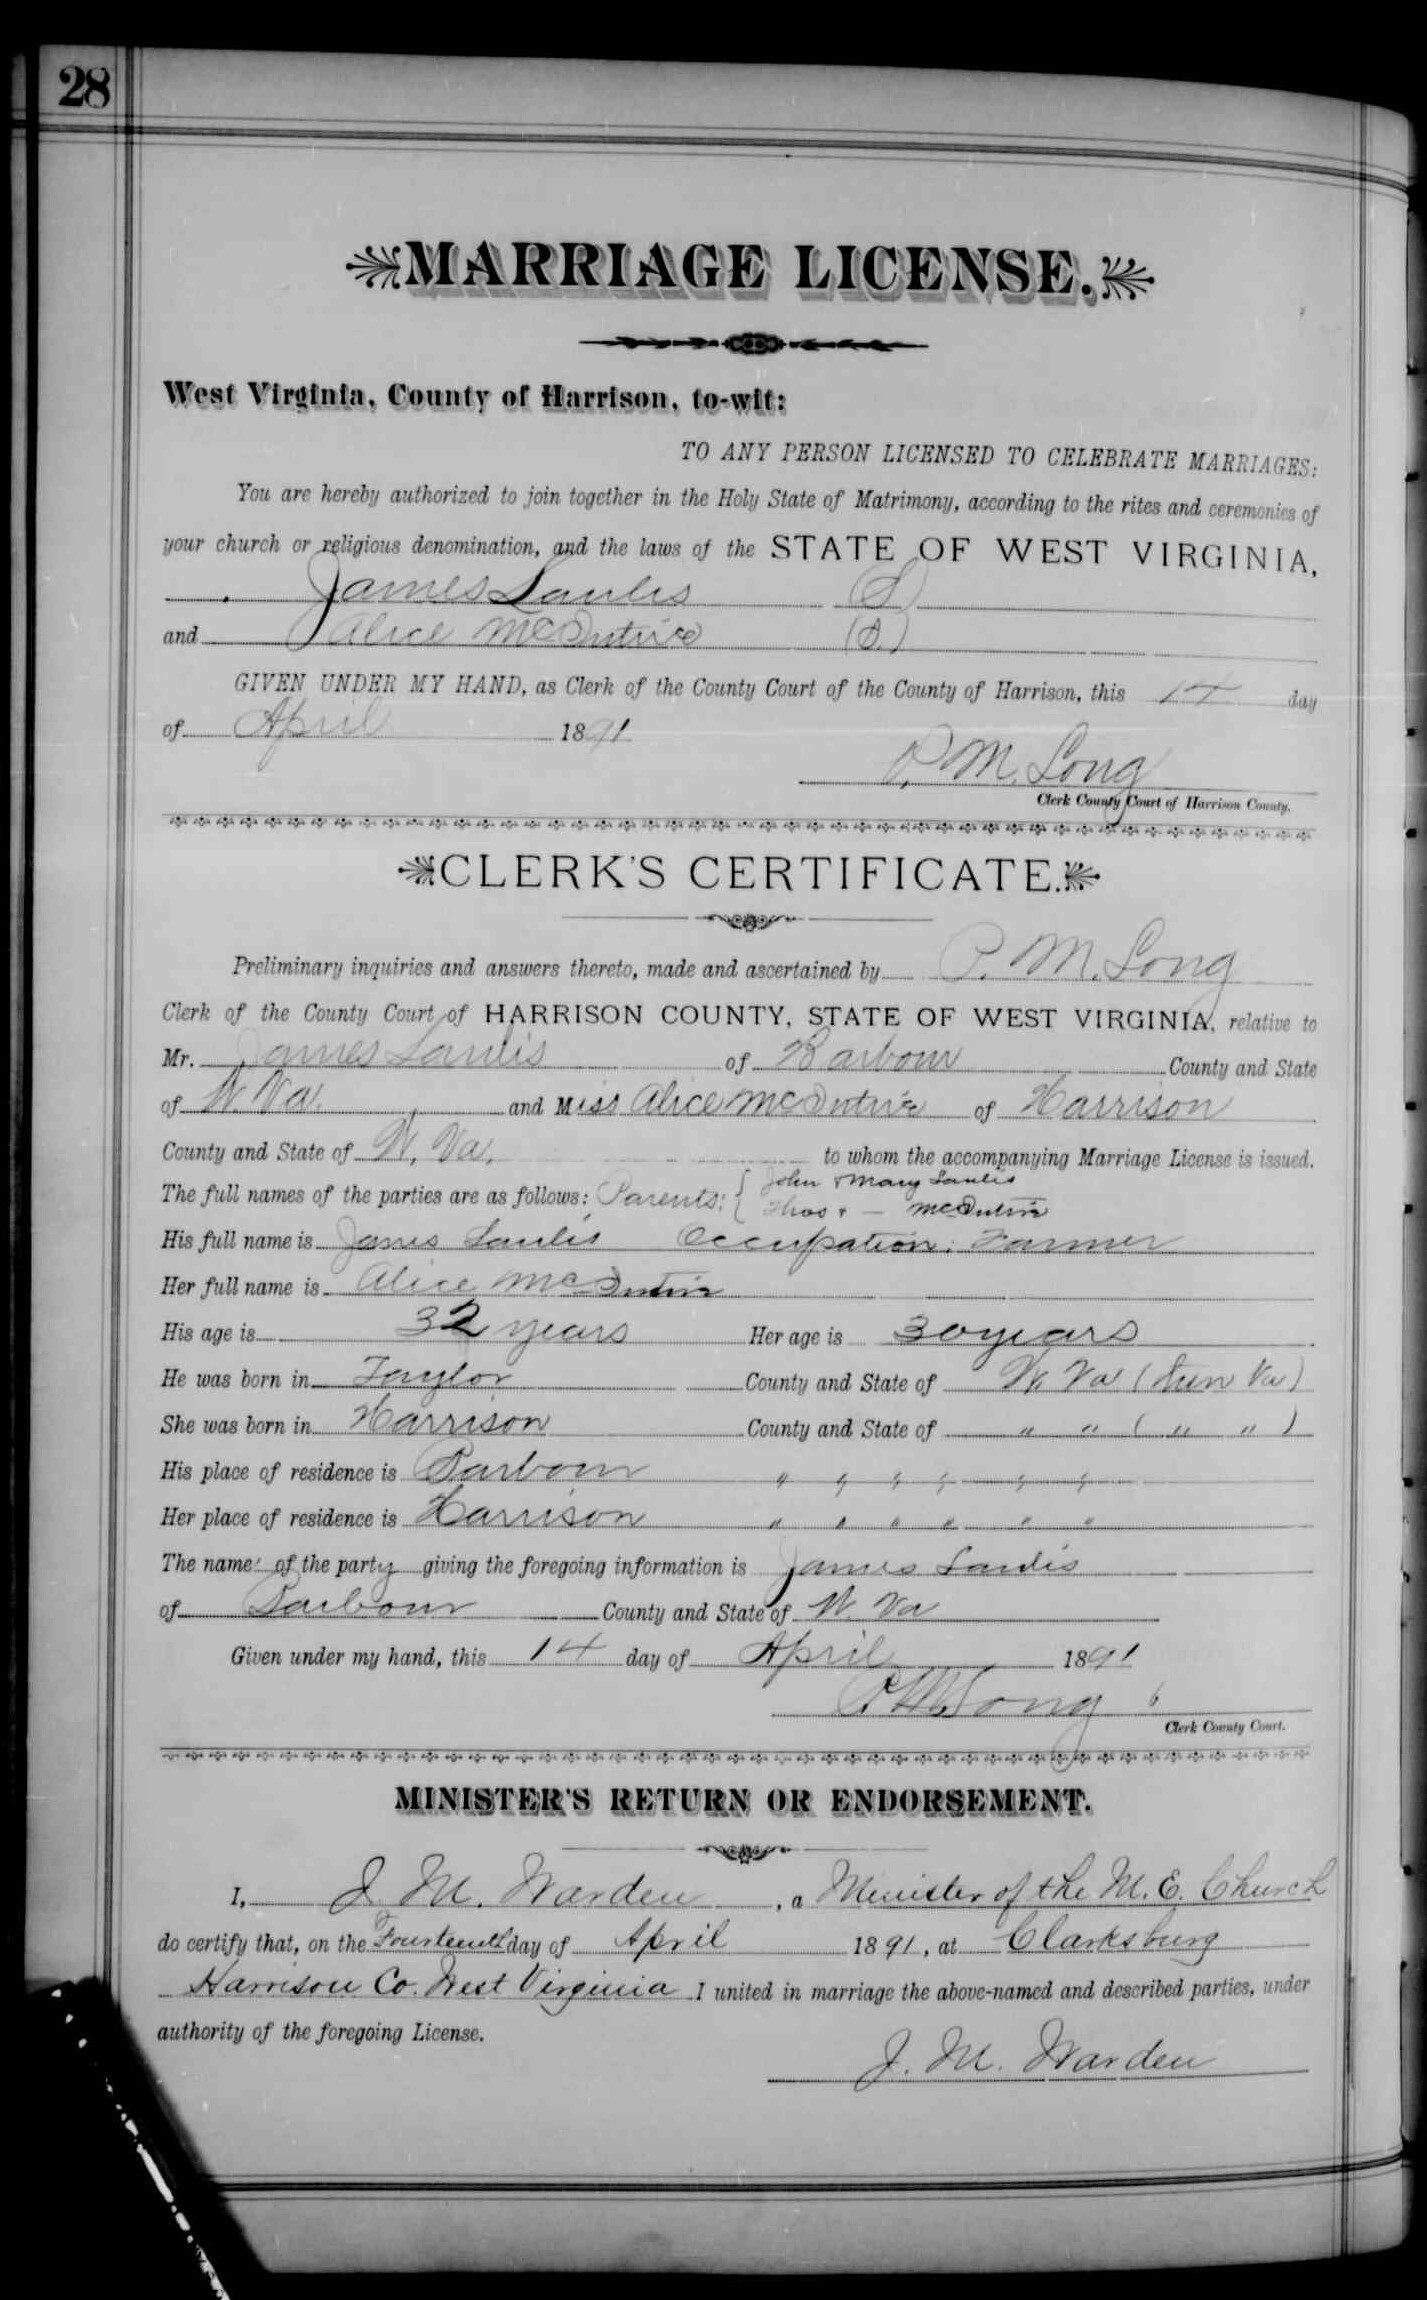 28
MARRIAGE LICENSE.
West Virginia, County of Harrison, to-wit:
TO ANY PERSON LICENSED TO CELEBRATE MARRIAGES:
You are hereby authorized to join together in the Holy State of Matrimony, according to the rites and ceremonies of
your church or religious denomination, and the laws of the STATE OF WEST VIRGINIA,
James Saulis (S)
and Alice McIntire (S.)
GIVEN UNDER MY HAND, as Clerk of the County Court of the County of Harrison, this 14 day
of April 1891
P. M. Long
Clerk County Court of Harrison County.
CLERK'S CERTIFICATE.
Preliminary inquiries and answers thereto, made and ascertained by P. M. Long
Clerk of the County Court of HARRISON COUNTY, STATE OF WEST VIRGINIA, relative to
Mr. James Saulis of Barbour County and State
of W. Va. and Miss Alice McIntire of Harrison
County and State of W. Va. to whom the accompanying Marriage License is issued.
The full names of the parties are as follows: Parents: { John & Mary Saulis
Thos & — McIntire
His full name is James Saulis Occupation: Farmer
Her full name is Alice McIntire
His age is 32 years Her age is 30 years
He was born in Taylor County and State of W. Va ( Va)
She was born in Harrison County and State of " " ( " " )
His place of residence is Barbour " " " " " "
Her place of residence is Harrison " " " " " "
The name of the party giving the foregoing information is James Saulis
of Barbour County and State of W. Va
Given under my hand, this 14 day of April 1891
P. M. Long
Clerk County Court.
MINISTER'S RETURN OR ENDORSEMENT.
I, J. M. Warden, a Minister of the M. E. Church
do certify that, on the Fourteenth day of April 1891, at Clarksburg
Harrison Co. West Virginia I united in marriage the above-named and described parties, under
authority of the foregoing License.
J. M. Warden